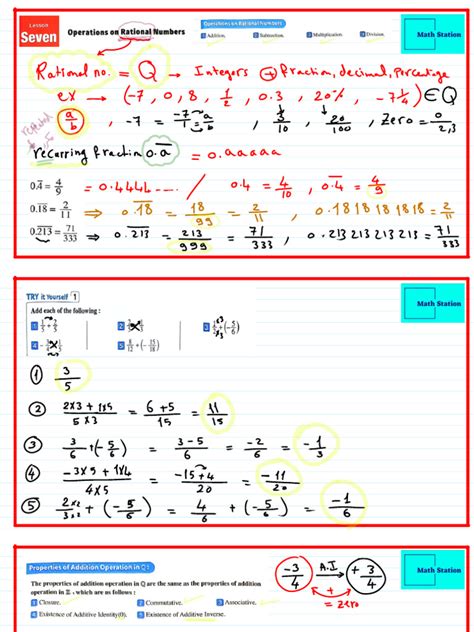 Lesson
Seven
Operations on Rational Numbers
Operations on Rational Numbers
1 Addition. 2 Subtraction. 3 Multiplication. 4 Division.
Math Station
Rational no. = Q → Integers + fraction, decimal, Percentage
ex → (-7, 0, 8, 1/2, 0.3, 20%, -7 1/4) ∈ Q
a/b, -7 = -7/1 = a/b, 3/10, 20/100, Zero = 0/2,3
recurring fraction 0.a̅ = 0.aaaaa
0.4̅ = 4/9 = 0.4444... / 0.4 = 4/10, 0.4̅ = 4/9
0.1̅8̅ = 2/11 ⇒ 0.1̅8̅ = 18/99 = 2/11, 0.1818181818 = 2/11
0.2̅1̅3̅ = 71/333 ⇒ 0.2̅1̅3̅ = 213/999 = 71/333, 0.213213213213 = 71/333
TRY it Yourself 1
Math Station
Add each of the following :
1 1/5 + 2/5 2 3 1/2 + (-5/6)
4 5 8/12 + (-15/18)
① 3/5
② 2x3 + 1x5 / 5x3 = 6+5 / 15 = 11/15
③ 3/6 + (-5/6) = 3-5 / 6 = -2/6 = -1/3
④ -3x5 + 1x4 / 4x5 = -15+4 / 20 = -11/20
⑤ 2x2 / 3x2 + (-5/6) = 4/6 + (-5/6) = -1/6
Properties of Addition Operation in Q :
-3/4 A.I +3/4
Math Station
+
= zero
The properties of addition operation in Q are the same as the properties of addition
operation in Z, which are as follows :
1 Closure. 2 Commutative. 3 Associative.
4 Existence of Additive Identity(0). 5 Existence of Additive Inverse.